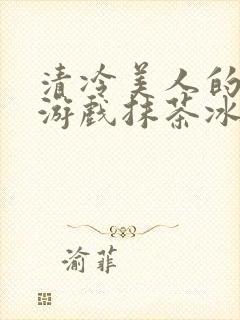 清冷美人的
游戏抹茶冰
渝菲